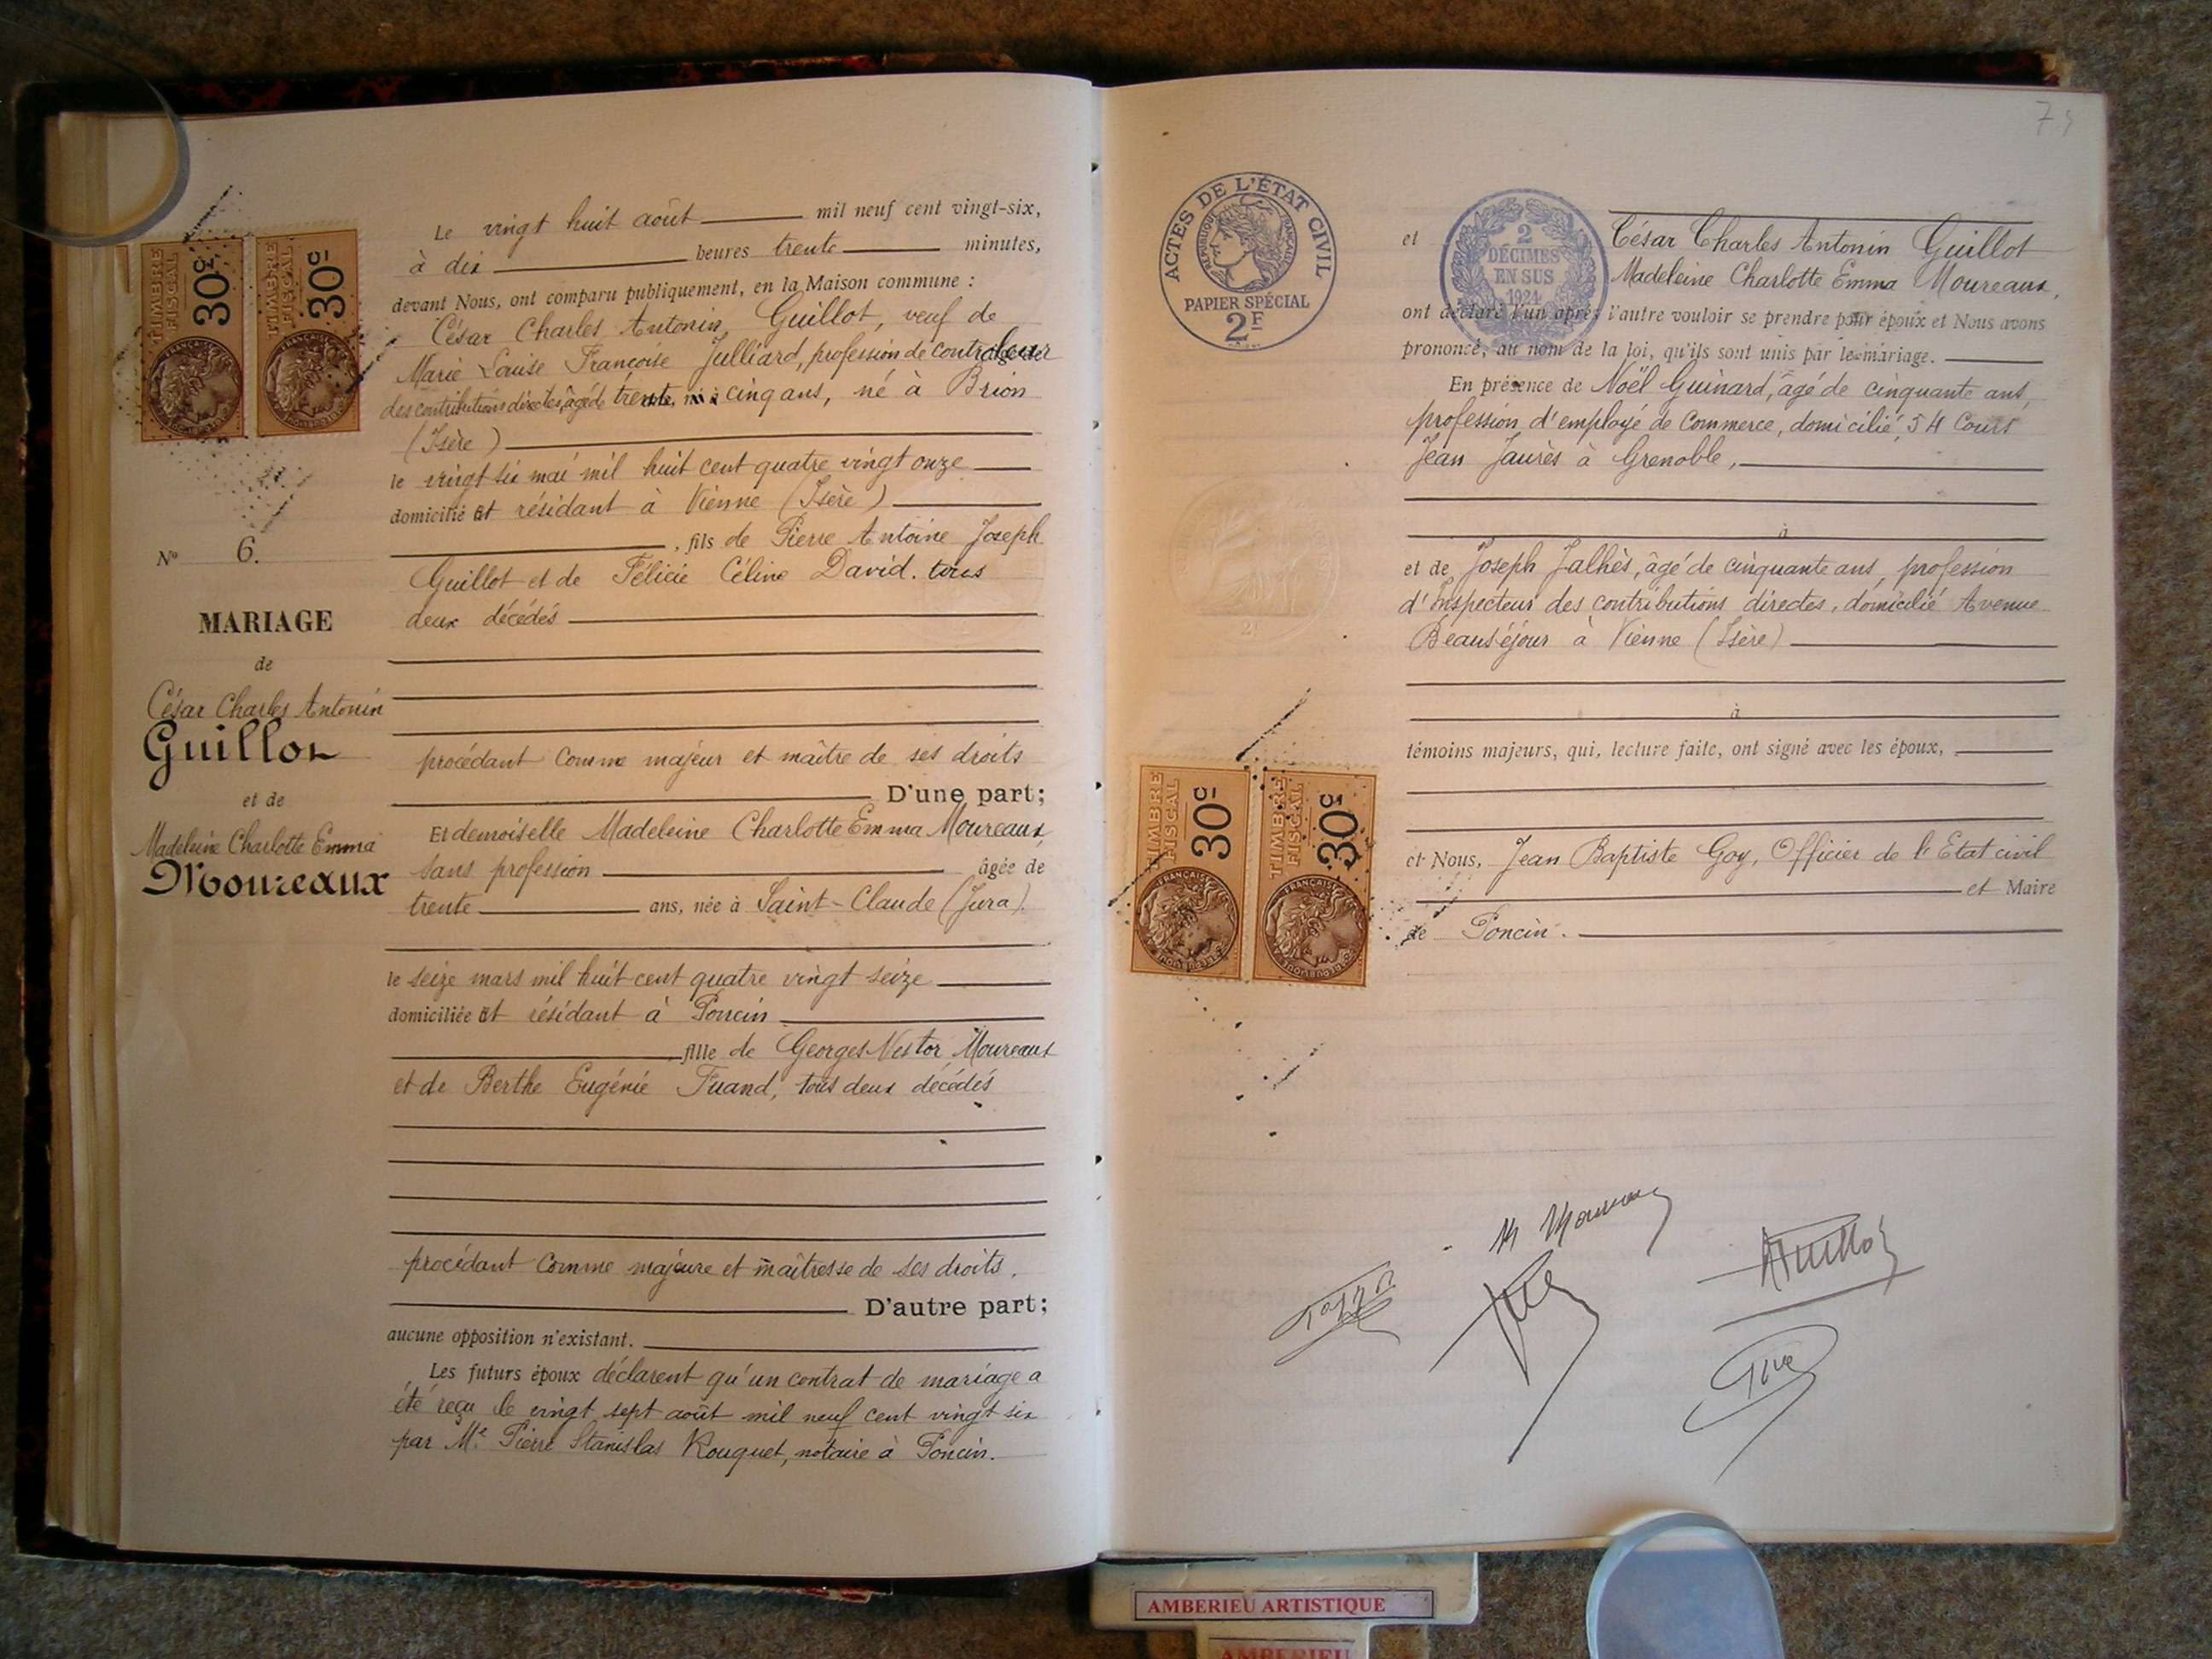 TIMBRE FISCAL 30c
TIMBRE FISCAL 30c
N° 6.
MARIAGE
de
César Charles Antonin
Guillot
et de
Madeleine Charlotte Emma
Moureaux
Le vingt huit août mil neuf cent vingt-six,
à dix heures trente minutes,
devant Nous, ont comparu publiquement, en la Maison commune :
César Charles Antonin Guillot, veuf de
Marie Louise Françoise Julliard, profession de controleur
des contributions directes, âgé de trente cinq ans, né à Brion
(Isère)
le vingt six mai mil huit cent quatre vingt onze
domicilié et résidant à Vienne (Isère)
, fils de Pierre Antoine Joseph
Guillot et de Félicie Céline David. tous
deux décédés
procédant comme majeur et maître de ses droits
D'une part;
Et demoiselle Madeleine Charlotte Emma Moureaux,
sans profession âgée de
trente ans, née à Saint-Claude (Jura).
le seize mars mil huit cent quatre vingt seize
domiciliée et résidant à Poncin
fille de Georges Nestor Moureaux
et de Berthe Eugénie Tuand, tous deux décédés
procédant comme majeure et maîtresse de ses droits.
D'autre part;
aucune opposition n'existant.
Les futurs époux déclarent qu'un contrat de mariage a
été reçu le vingt sept août mil neuf cent vingt six
par Me Pierre Stanislas Rouquet, notaire à Poncin.
ACTES DE L'ÉTAT CIVIL
RÉPUBLIQUE FRANÇAISE
PAPIER SPÉCIAL
2F
2
DÉCIMES
EN SUS
1924
César Charles Antonin Guillot
et Madeleine Charlotte Emma Moureaux,
ont déclaré l'un après l'autre vouloir se prendre pour époux et Nous avons
prononcé, au nom de la loi, qu'ils sont unis par le mariage.
En présence de Noël Guinard, âgé de cinquante ans,
profession d'employé de commerce, domicilié, 54 Cours
Jean Jaurès à Grenoble,
à
et de Joseph Jalhès, âgé de cinquante ans, profession
d'Inspecteur des contributions directes, domicilié Avenue
Beauséjour à Vienne (Isère)
à
témoins majeurs, qui, lecture faite, ont signé avec les époux,
TIMBRE FISCAL 30c
TIMBRE FISCAL 30c
et Nous, Jean Baptiste Goy, Officier de l'Etat civil
et Maire
de Poncin.
AMBERIEU ARTISTIQUE
AMBERIEU